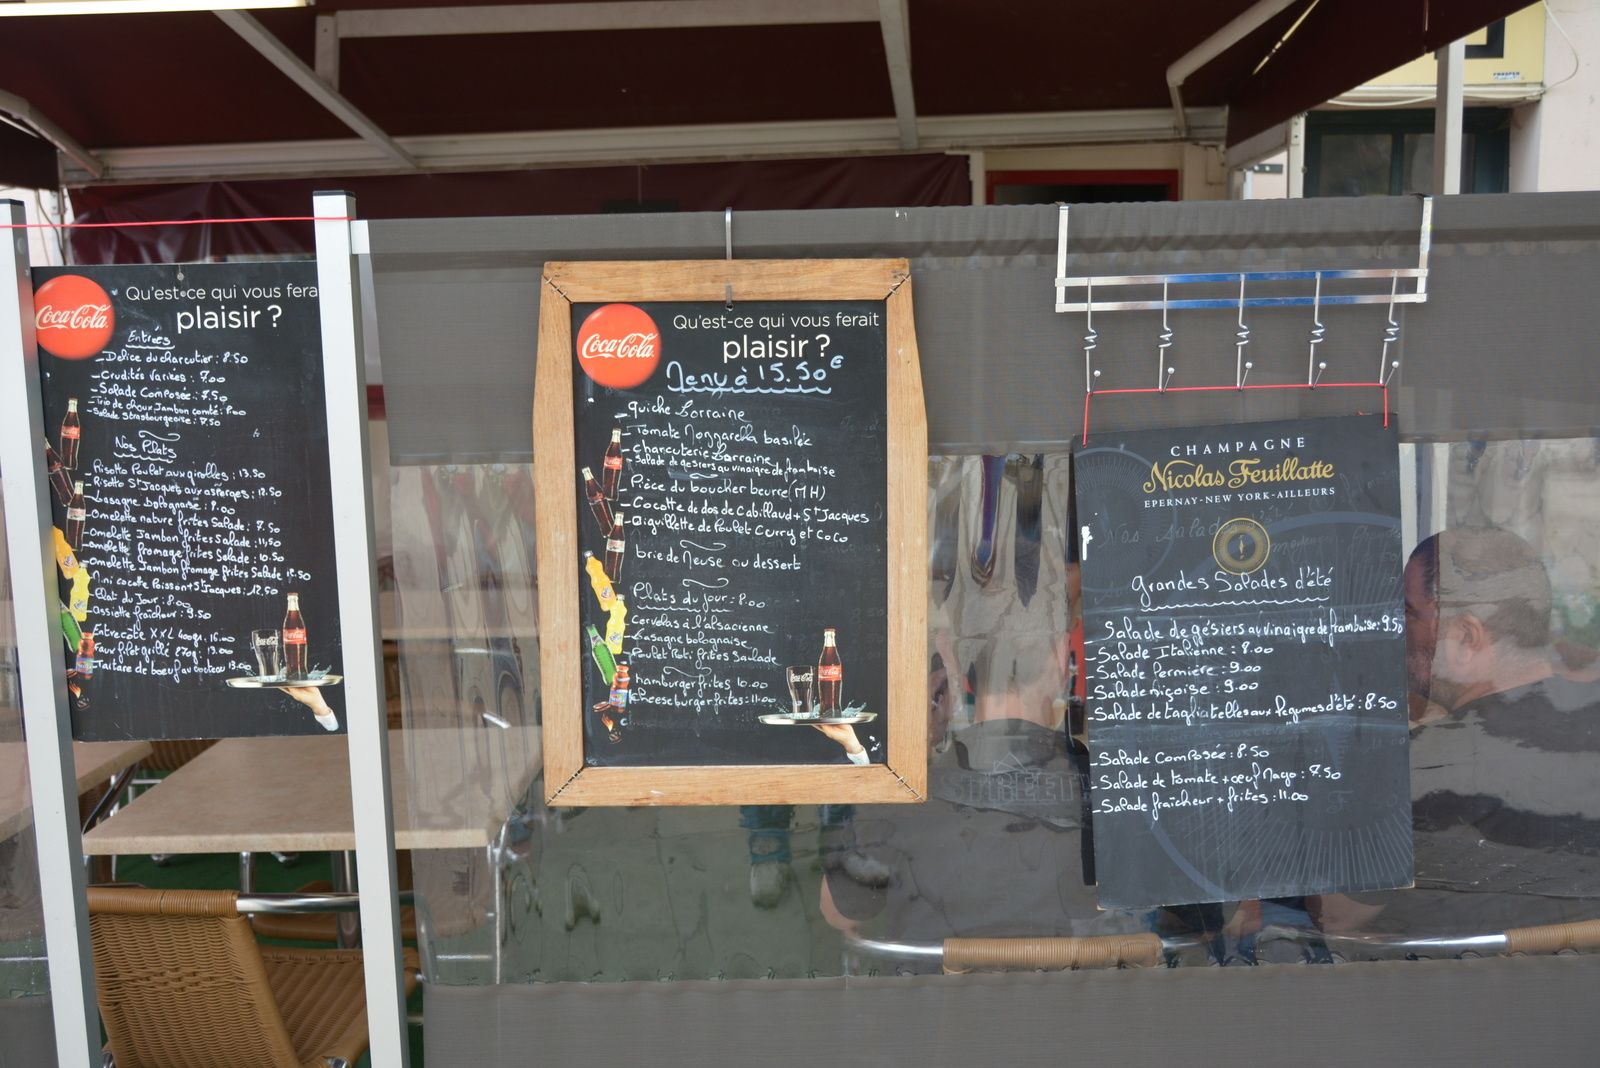 Coca-Cola
Qu'est-ce qui vous fera
plaisir ?
Entrées
- Délice du charcutier : 8.50
- Crudités Variées : 7.00
- Salade Composée : 7.50
- Trio de choux Jambon comté :
- Salade strasbourgeoise : 7.50
Nos Plats
- Risotto Poulet aux girolles : 13.50
- Risotto St Jacques aux asperges : 12.50
- Lasagne bolognaise : 8.00
- Omelette nature frites Salade : 7.50
- Omelette Jambon frites Salade : 11,50
- Omelette fromage frites Salade : 10.50
- Omelette Jambon fromage frites Salade
- Mini cocotte Poisson + St Jacques : 12,50
- Plat du Jour : 8.00
- Assiette fraîcheur : 9.50
- Entrecôte XXL 400gr. 16.00
- Faux filet grillé 270gr. 13.00
- Tartare de boeuf au couteau 13.00
Coca-Cola
Qu'est-ce qui vous ferait
plaisir ?
Menu à 15.50€
- quiche Lorraine
- Tomate Mozzarella basilic
- charcuterie Lorraine
- Salade de gésiers au vinaigre de framboise
- Pièce du boucher beurre (MH)
- Cocotte de dos de Cabillaud + St Jacques
- aiguillette de Poulet Curry et Coco
brie de Meuse ou dessert
Plats du jour : 8.00
cervelas à l'alsacienne
Lasagne bolognaise
Poulet Roti frites Salade
hamburger frites 10.00
cheeseburger frites : 11.00
CHAMPAGNE
Nicolas Feuillatte
EPERNAY-NEW YORK-AILLEURS
Grandes Salades d'été
- Salade de gésiers au vinaigre de framboise : 9.50
- Salade Italienne : 8.00
- Salade Fermière : 9.00
- Salade niçoise : 9.00
- Salade de tagliatelles aux légumes d'été : 8.50
- Salade Composée : 8.50
- Salade de tomate + oeuf Mayo : 7.50
- Salade fraîcheur + frites : 11.00